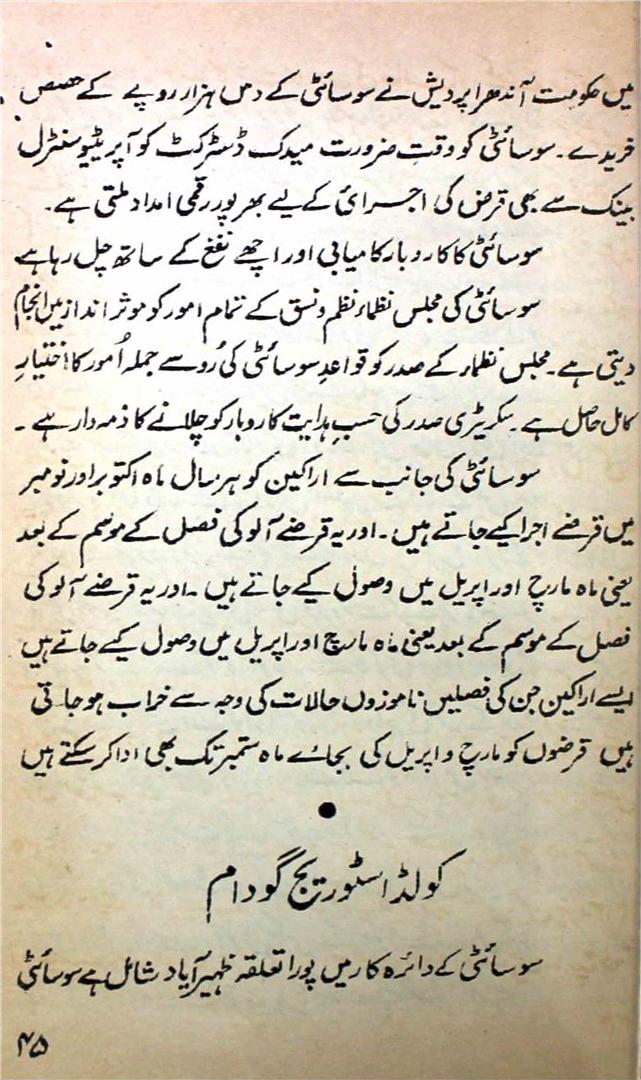 میں حکومت آندھرا پردیش نے سوسائٹی کے دس ہزار روپے کے حصص
خریدے۔ سوسائٹی کو وقتِ ضرورت میدک ڈسٹرکٹ کو آپریٹیو سنٹرل
بینک سے بھی قرض کی اجرائی کے لیے بھرپور رقمی امداد ملتی ہے۔
سوسائٹی کا کاروبار کامیابی اور اچھے نفع کے ساتھ چل رہا ہے
سوسائٹی کی مجلس نظماء نظم و نسق کے تمام امور کو موثر انداز میں انجام
دیتی ہے۔ مجلس نظماء کے صدر کو قواعدِ سوسائٹی کی رُو سے جملہ اُمور کا اختیارِ
کامل حاصل ہے۔ سکریٹری صدر کی حسبِ ہدایت کاروبار کو چلانے کا ذمہ دار ہے ۔
سوسائٹی کی جانب سے اراکین کو ہر سال ماہ اکتوبر اور نومبر
میں قرضے اجرا کیے جاتے ہیں ۔ اور یہ قرضے آلو کی فصل کے موسم کے بعد
یعنی ماہ مارچ اور اپریل میں وصول کیے جاتے ہیں ۔ اور یہ قرضے آلو کی
فصل کے موسم کے بعد یعنی ماہ مارچ اور اپریل میں وصول کیے جاتے ہیں
ایسے اراکین جن کی فصلیں ناموزوں حالات کی وجہ سے خراب ہو جاتی
ہیں قرضوں کو مارچ و اپریل کی بجائے ماہ ستمبر تک بھی ادا کر سکتے ہیں
●
کولڈ اسٹوریج گودام
سوسائٹی کے دائرہ کار میں پورا تعلقہ ظہیرآباد شامل ہے سوسائٹی
۴۵